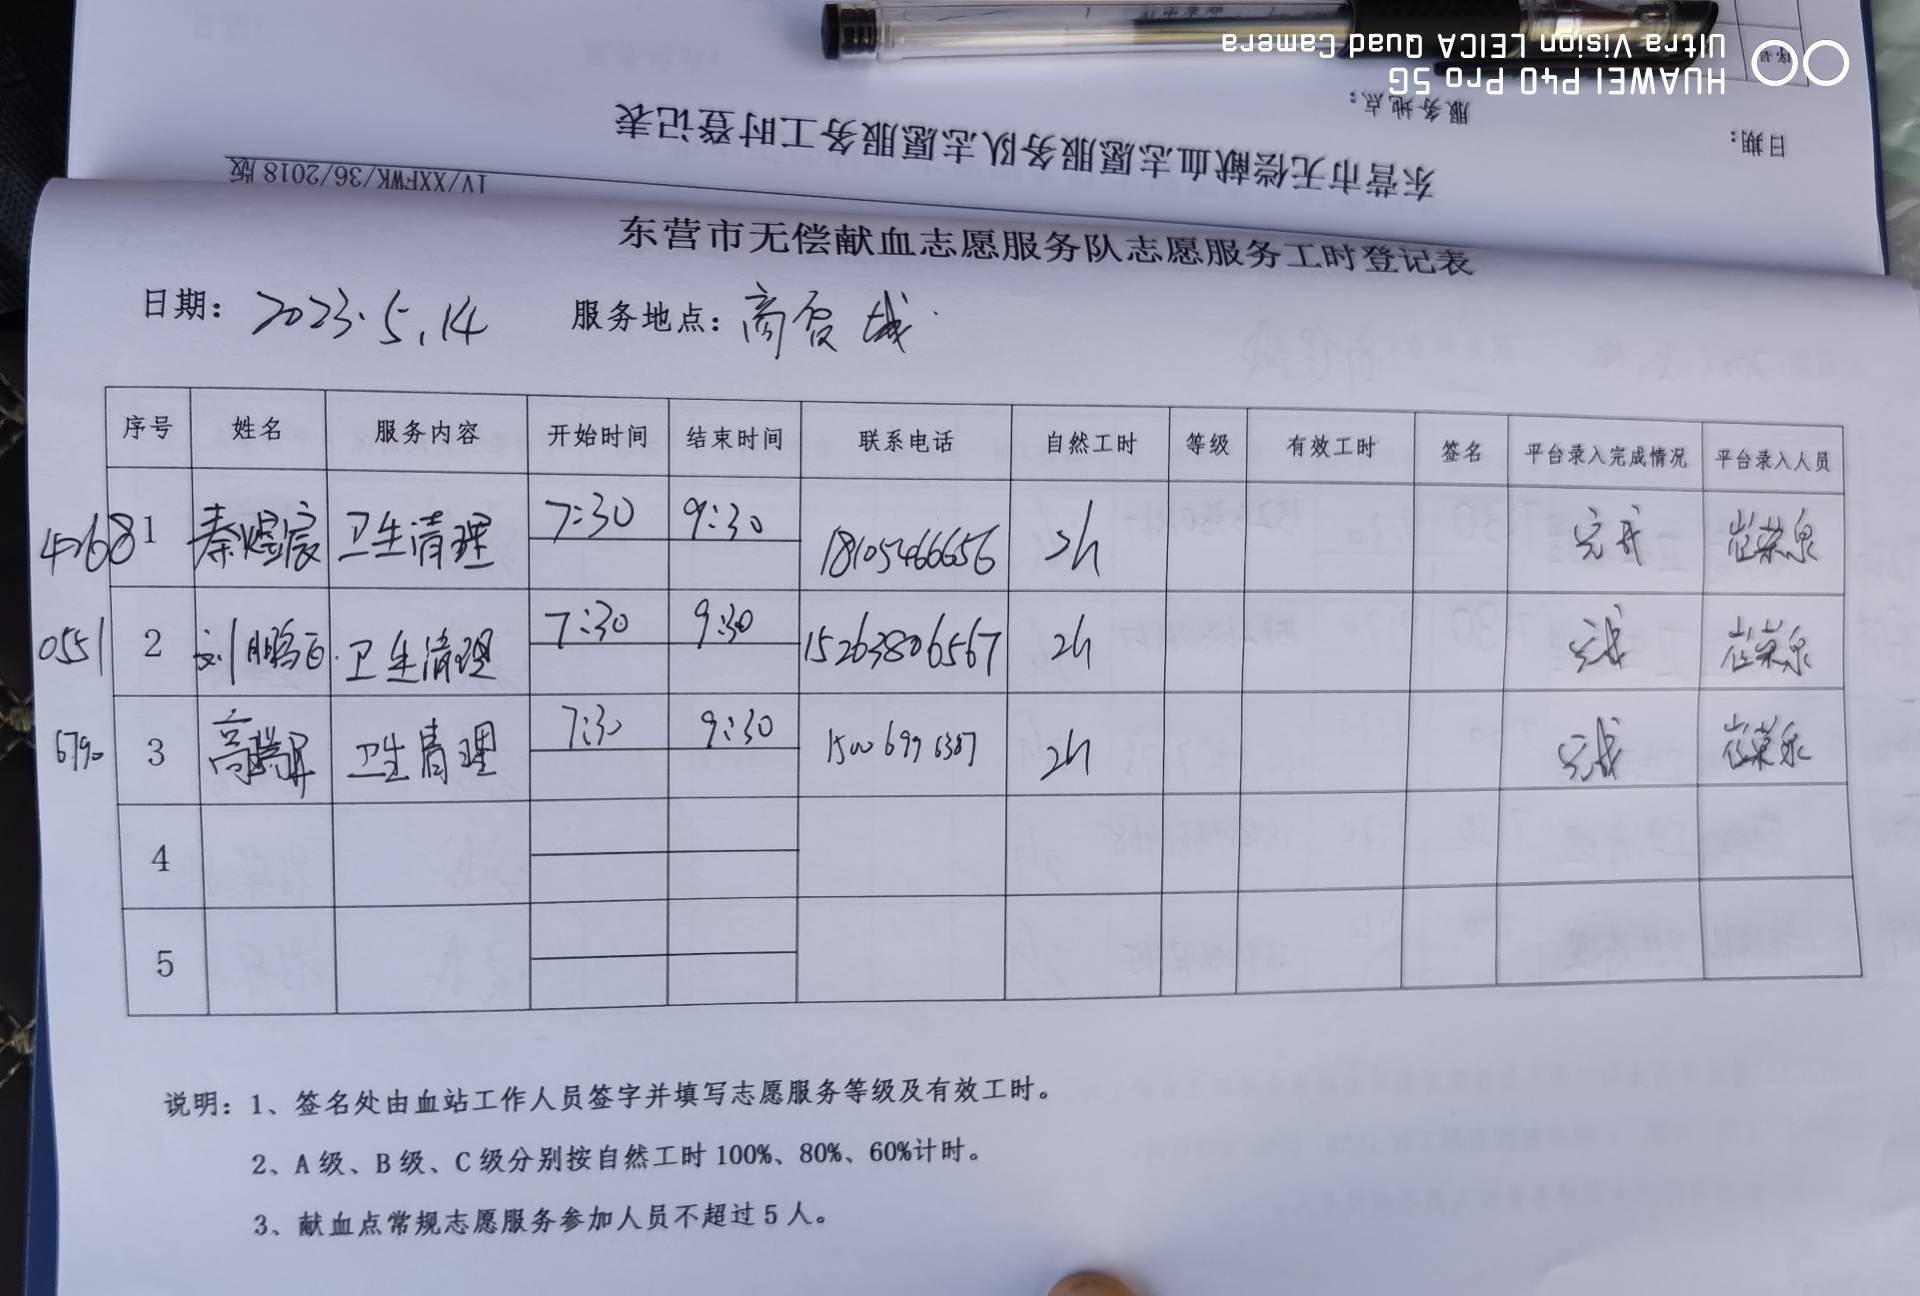 HUAWEI P40 Pro 5G
Ultra Vision LEICA Quad Camera
日期:
服务地点:
东营市无偿献血志愿服务队志愿服务工时登记表
IV/XXFWK/36/2018 版
东营市无偿献血志愿服务队志愿服务工时登记表
日期: 2023.5.14 服务地点: 商贸城
序号 姓名 服务内容 开始时间 结束时间 联系电话 自然工时 等级 有效工时 签名 平台录入完成情况 平台录入人员
4268 1 秦煜宸 卫生清理 7:30 9:30 18105466656 2h 完成
0551 2 刘鹏 卫生清理 7:30 9:30 15263806567 2h 完成
6790 3 高瑞屏 卫生清理 7:30 9:30 1500 699 6387 2h 完成
4
5
说明: 1、签名处由血站工作人员签字并填写志愿服务等级及有效工时。
2、A 级、B 级、C 级分别按自然工时 100%、80%、60%计时。
3、献血点常规志愿服务参加人员不超过 5 人。